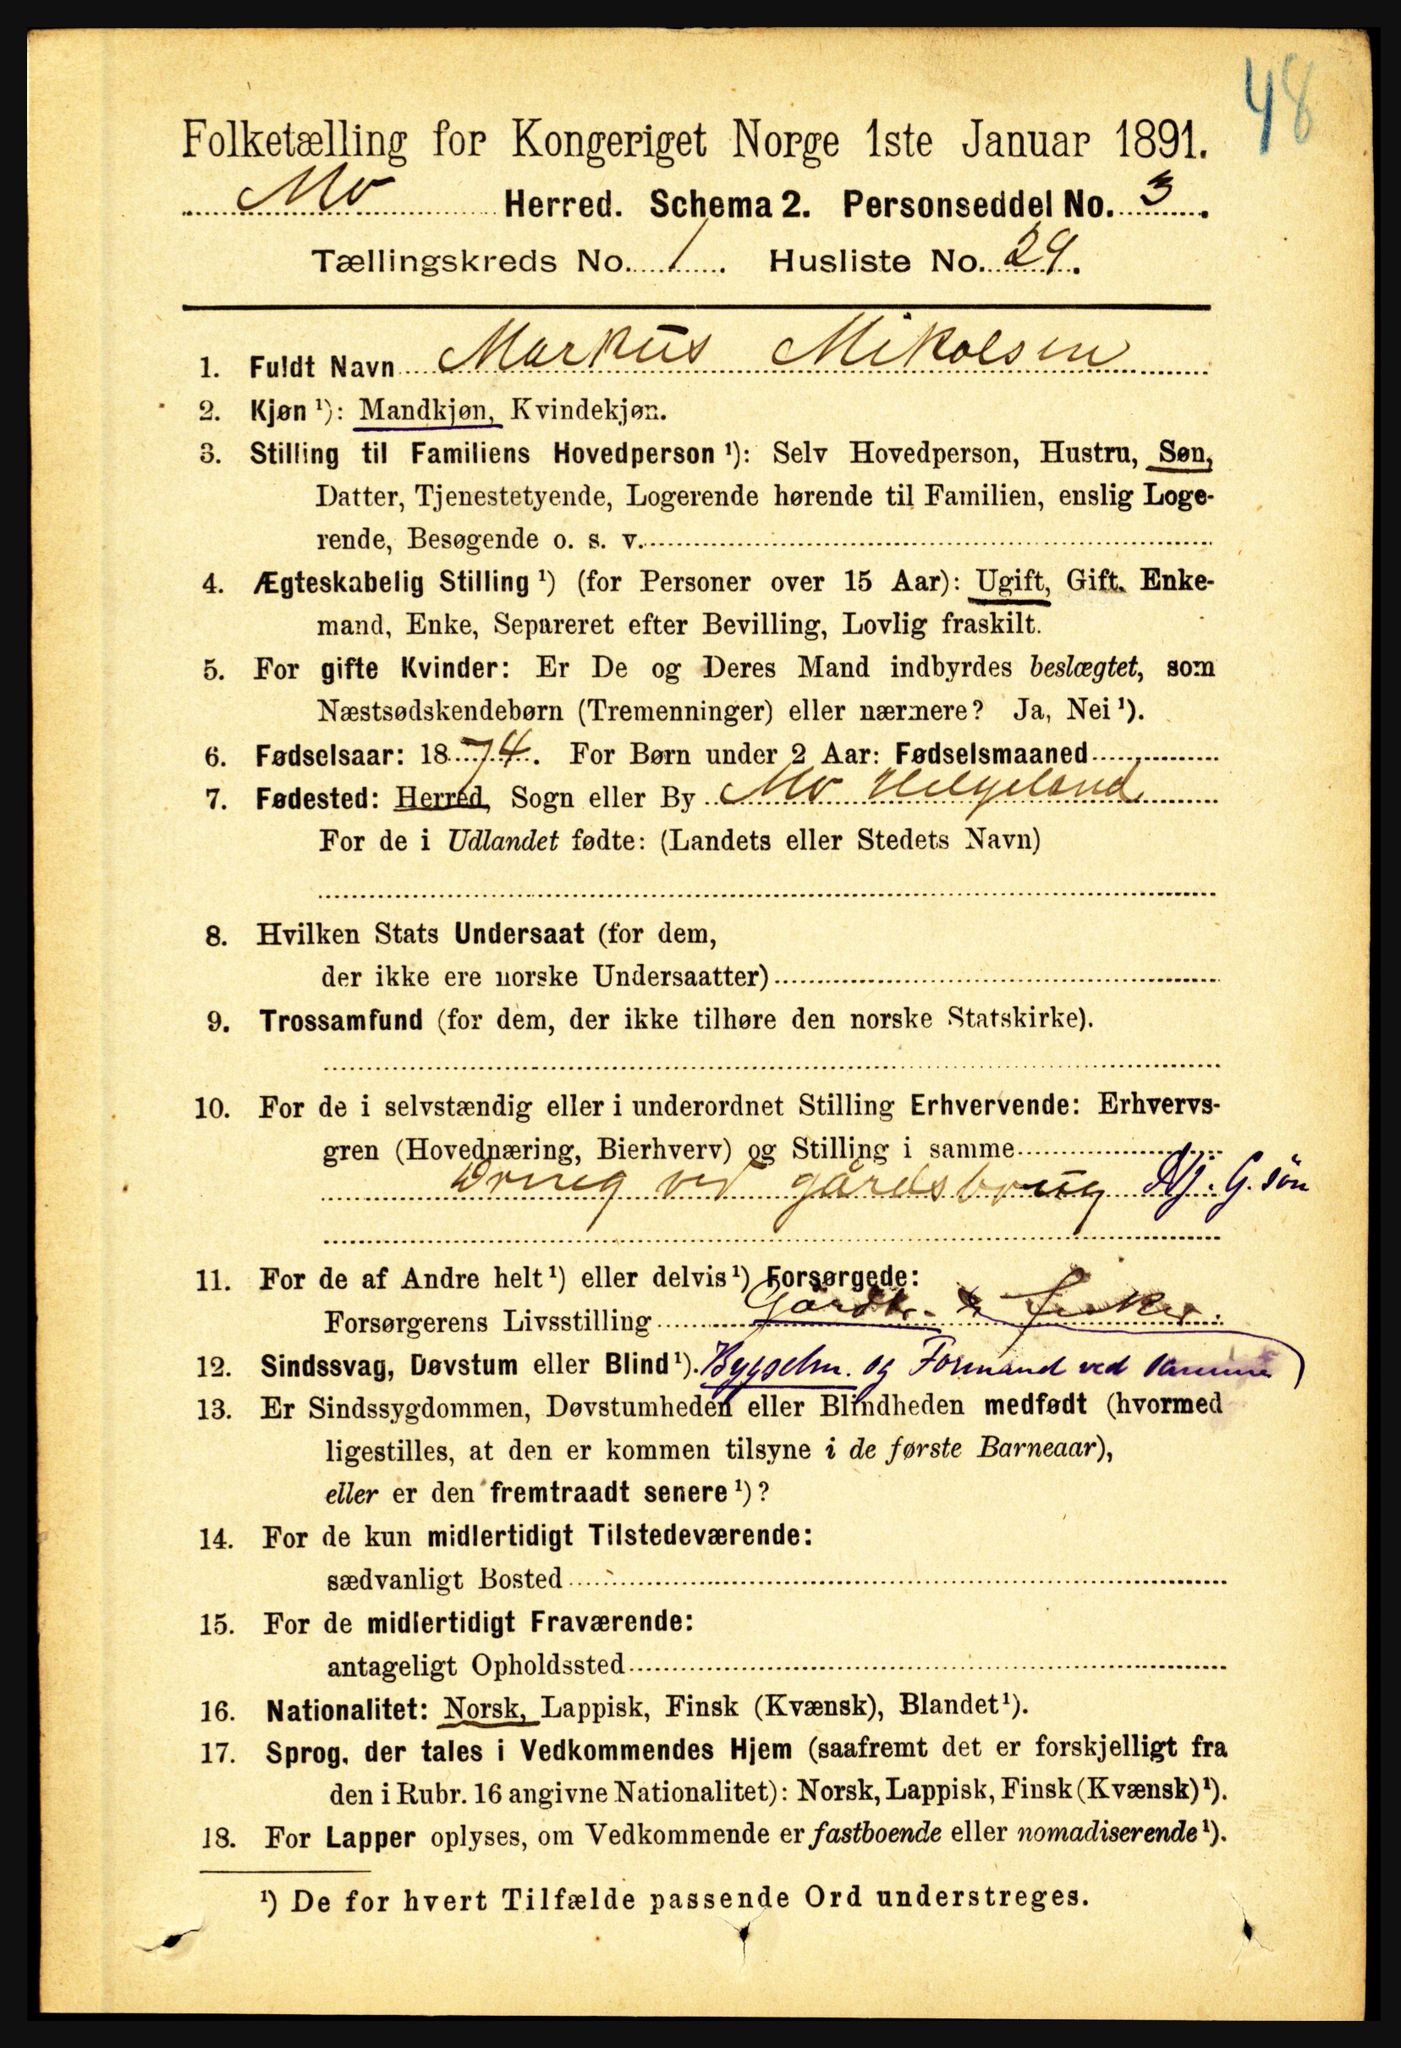 48
Folketælling for Kongeriget Norge 1ste Januar 1891.
Mo Herred. Schema 2. Personseddel No. 3.
Tællingskreds No. 1. Husliste No. 29.
1. Fuldt Navn Markus Mikalsen
2. Kjøn ¹): Mandkjøn, Kvindekjøn.
3. Stilling til Familiens Hovedperson ¹): Selv Hovedperson, Hustru, Søn,
Datter, Tjenestetyende, Logerende hørende til Familien, enslig Loge-
rende, Besøgende o. s. v.
4. Ægteskabelig Stilling ¹) (for Personer over 15 Aar): Ugift, Gift, Enke-
mand, Enke, Separeret efter Bevilling, Lovlig fraskilt.
5. For gifte Kvinder: Er De og Deres Mand indbyrdes beslægtet, som
Næstsødskendebørn (Tremenninger) eller nærmere? Ja, Nei ¹).
6. Fødselsaar: 1874. For Børn under 2 Aar: Fødselsmaaned
7. Fødested: Herred, Sogn eller By Mo Helgeland
For de i Udlandet fødte: (Landets eller Stedets Navn)
8. Hvilken Stats Undersaat (for dem,
der ikke ere norske Undersaatter)
9. Trossamfund (for dem, der ikke tilhøre den norske Statskirke).
10. For de i selvstændig eller i underordnet Stilling Erhvervende: Erhvervs-
gren (Hovednæring, Bierhverv) og Stilling i samme
ved gårdsbrug Hj. G. søn
11. For de af Andre helt ¹) eller delvis ¹) Forsørgede:
Forsørgerens Livsstilling Gårdbr. & fisker.
12. Sindssvag, Døvstum eller Blind ¹). og Formand ved
13. Er Sindssygdommen, Døvstumheden eller Blindheden medfødt (hvormed
ligestilles, at den er kommen tilsyne i de første Barneaar),
eller er den fremtraadt senere ¹)?
14. For de kun midlertidigt Tilstedeværende:
sædvanligt Bosted
15. For de midlertidigt Fraværende:
antageligt Opholdssted
16. Nationalitet: Norsk, Lappisk, Finsk (Kvænsk), Blandet ¹).
17. Sprog, der tales i Vedkommendes Hjem (saafremt det er forskjelligt fra
den i Rubr. 16 angivne Nationalitet): Norsk, Lappisk, Finsk (Kvænsk) ¹).
18. For Lapper oplyses, om Vedkommende er fastboende eller nomadiserende ¹).
¹) De for hvert Tilfælde passende Ord understreges.